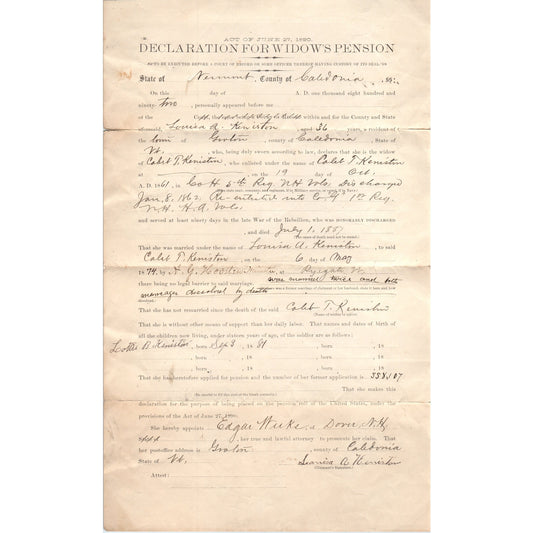 ACT OF JUNE 27, 1890.
DECLARATION FOR WIDOW'S PENSION
State of Vermont, County of Caledonia, ss:
On this day of A. D. one thousand eight hundred and
ninety-two, personally appeared before me
of the within and for the County and State
aforesaid, Louisa A. Keniston, aged 36 years, a resident of
the town of Groton, county of Caledonia, State of
Vt., who, being duly sworn according to law, declares that she is the widow of
Caleb T. Keniston, who enlisted under the name of Caleb T. Keniston
at on the 19 day of Oct.
A. D. 1861, in Co H 5th Reg. N.H. Vols. Discharged
Jan. 8, 1862. Re-enlisted into Co. 1st Reg.
N.H. H.A. Vols.
and served at least ninety days in the late War of the Rebellion, who was HONORABLY DISCHARGED
, and died July 1, 1887
That she was married under the name of Louisa A. Keniston, to said
Caleb T. Keniston, on the 6 day of May
1874, by A. G. at Ryegate Vt.
there being no legal barrier to said marriage. was married twice and both
marriages dissolved by death
That she has not remarried since the death of the said Caleb T. Keniston
That she is without other means of support than her daily labor. That names and dates of birth of
all the children now living, under sixteen years of age, of the soldier are as follows:
Lottie B. Keniston, born Sep 3, 1881 , born , 18
, born , 18 , born , 18
, born , 18 , born , 18
That she has heretofore applied for pension and the number of her former application is 358,187
That she makes this
declaration for the purpose of being placed on the pension roll of the United States, under the
provisions of the Act of June 27, 1890.
She hereby appoints Edgar Weeks, of Dover, N.H.
her true and lawful attorney to prosecute her claim. That
her postoffice address is Groton, county of Caledonia
State of Vt. Louisa A Keniston
(Claimant's Signature.)
Attest: